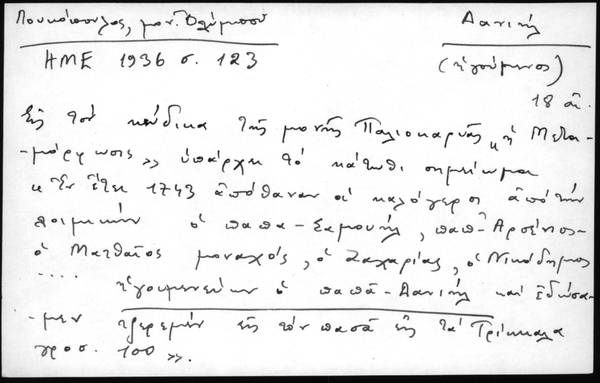 Λουκόπουλος, μον. Ὀλύμπου
Δανιήλ
ΗΜΕ 1936 σ. 123
(ἡγούμενος)
18 αἰ.
Εἰς τὸν κώδικα τῆς μονῆς Παλιοκαρυᾶς « ἡ Μετα-
-μόρφωσις » ὑπάρχει τὸ κάτωθι σημείωμα
« Ἐν ἔτει 1743 ἀπόθαναν οἱ καλόγεροι ἀπό τὴν
λοιμικήν ὁ παπα-Σαμουήλ, παπ-Ἀρσένιος-
ὁ Ματθαῖος μοναχός, ὁ Ζαχαρίας, ὁ Νικόδημος
.... ἡγουμενεύων ὁ παπᾶ-Δανιήλ καὶ ἐδώσα-
-μεν τζερεμέν εἰς τὸν πασᾶ εἰς τὰ Τρίκκαλα
γροσ. 100 ».